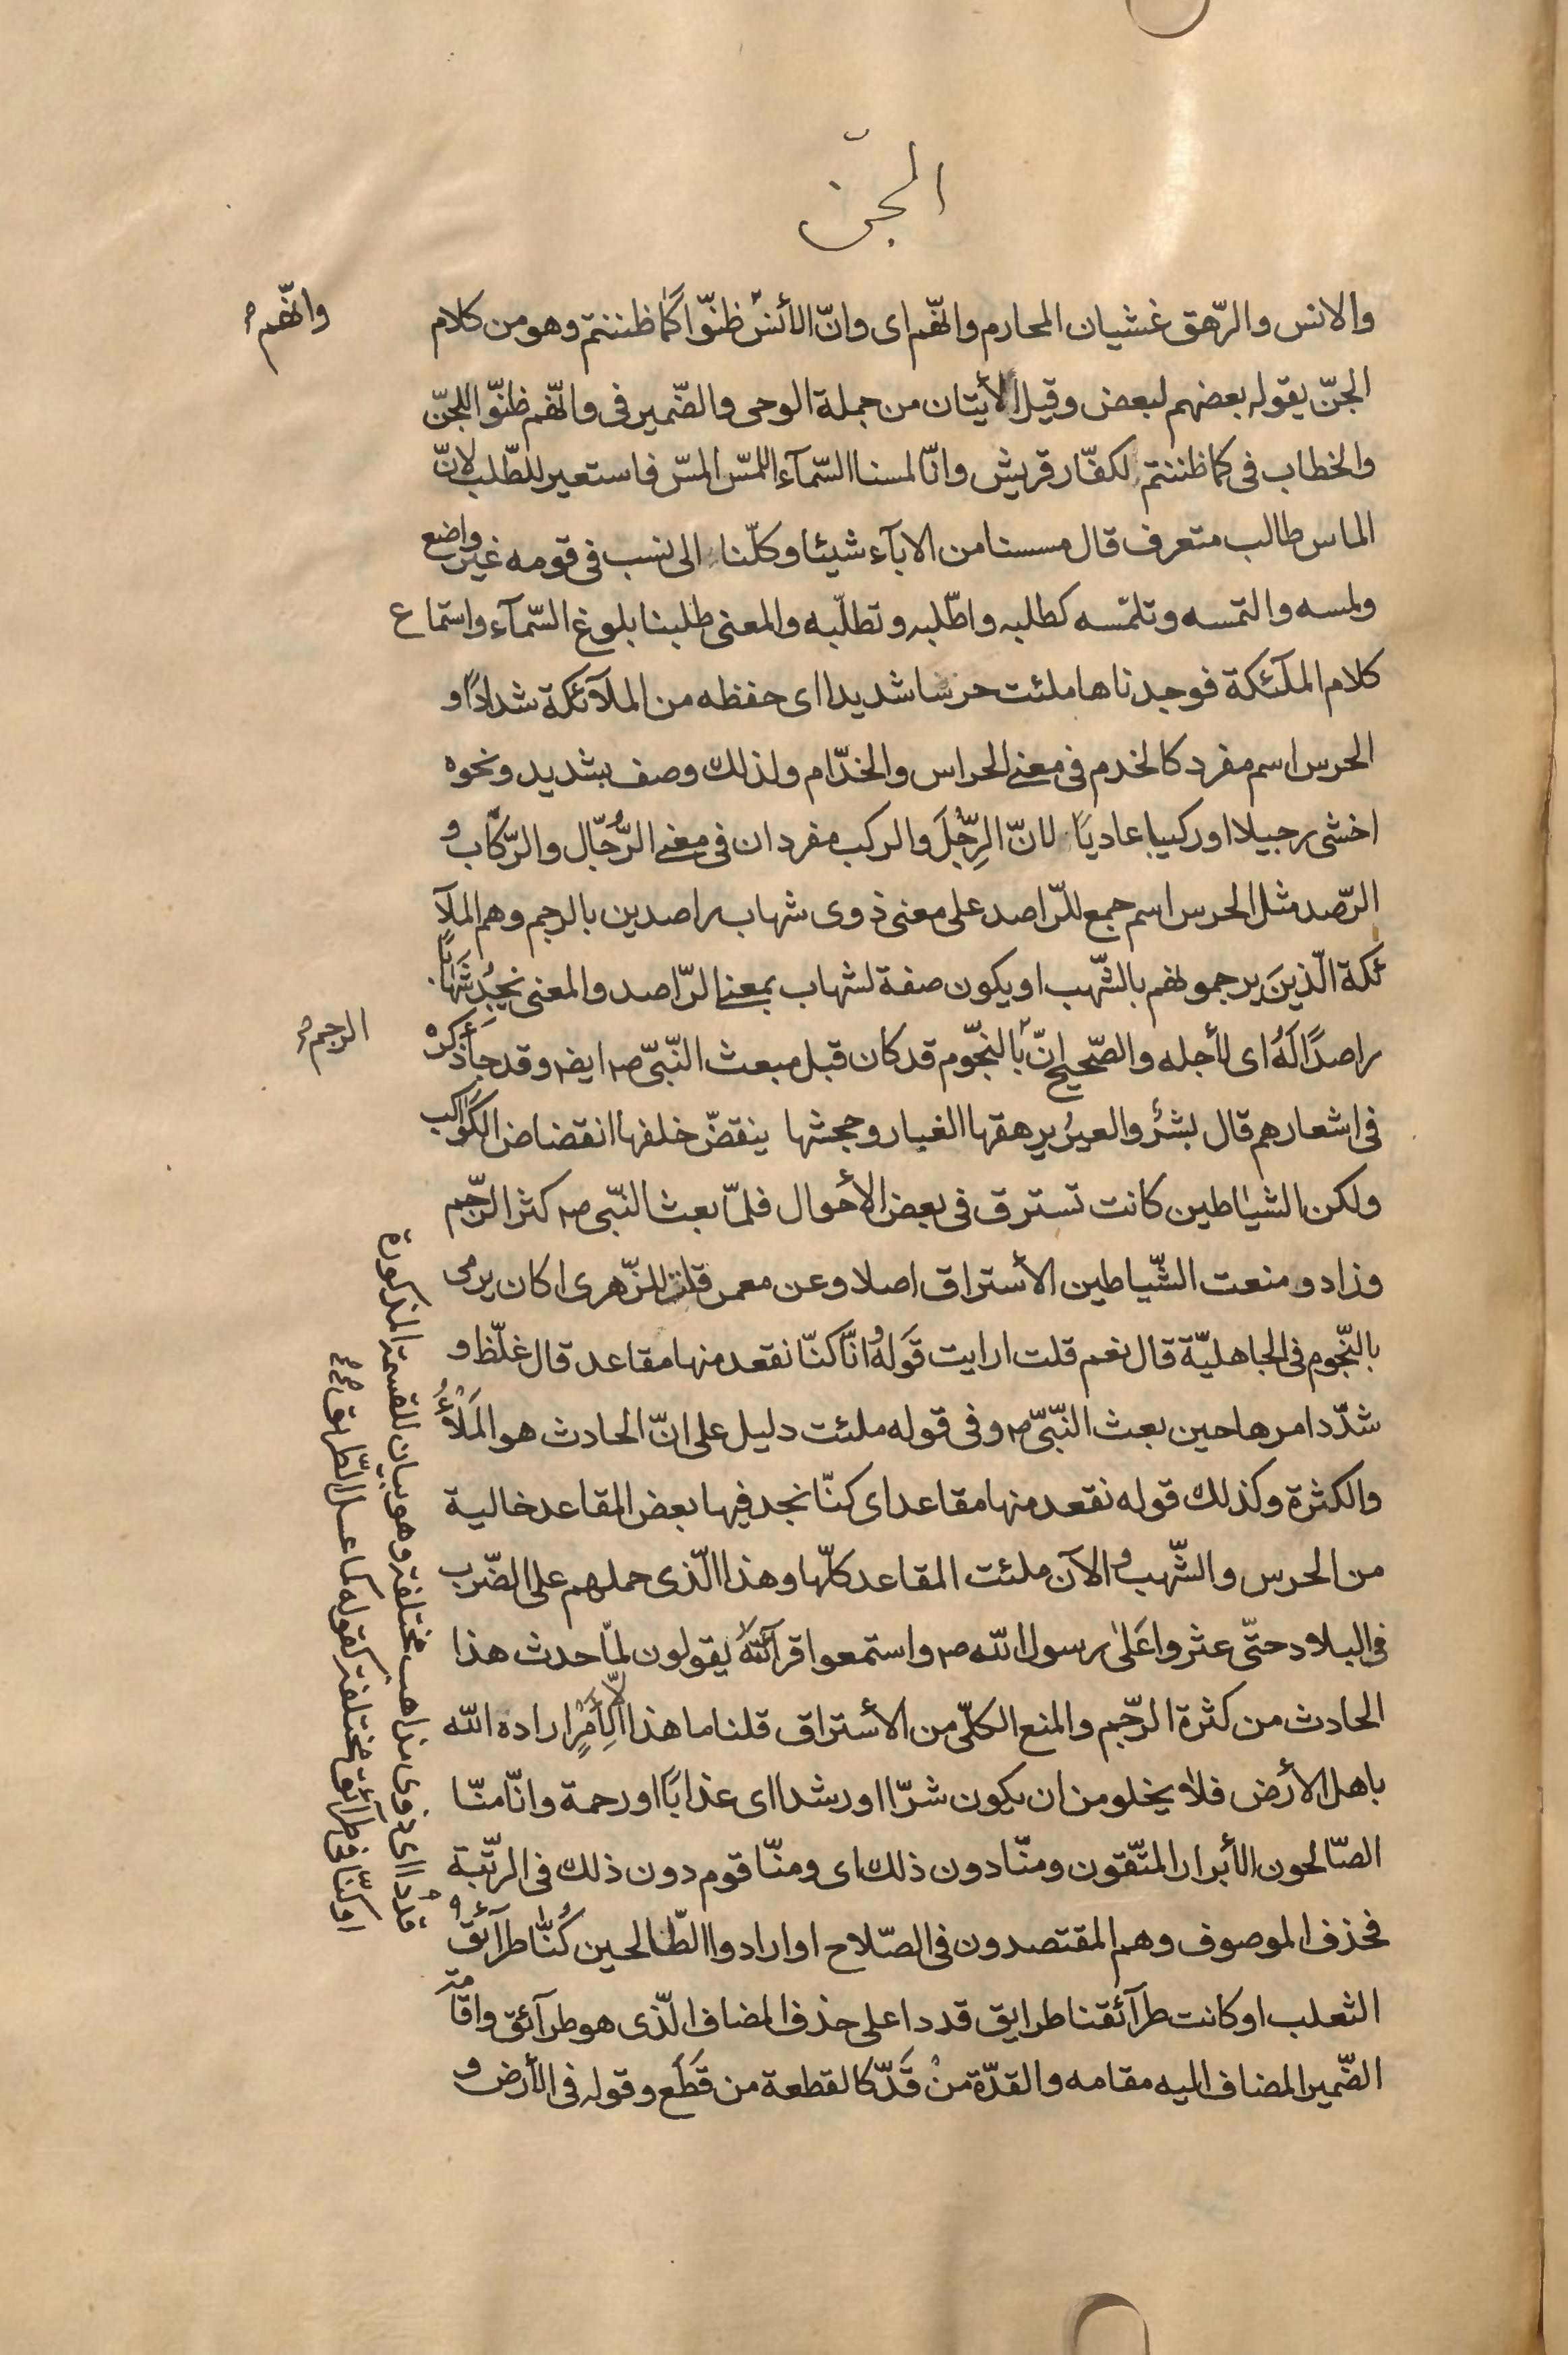 الجنّ
والانس والرّهق غشيان المحارم وانّهم اى وانّ الأنس ظنّوا كما ظننتم وهو من كلام
وانّهم
الجنّ يقوله بعضهم لبعض وقيل الأيتان من جملة الوحى والضّمير فى وانّهم ظنّوا للجنّ
والخطاب فى كما ظننتم لكفّار قريش وانّا لمسنا السّمآء اللمسّ المسّ فاستعير للطّلب لانّ
الماس طالب متعرف قال مسسنا من الابآء شيئا وكلّنا الى نسب فى قومه غير واضع
ولمسه والتمسه وتلمّسه كطلبه واطّلبه وتطلّبه والمعنى طلبنا بلوغ السّمآء واستماع
كلام الملآئكة فوجدناها ملئت حرسا شديدا اى حفظه من الملآئكة شدادًا و
الحرس اسم مفرد كالخدم فى معنى الحراس والخدّام ولذلك وصف بشديد ونحوه
اخشى رجيلا او ركيبا عاديًا لانّ الرّجل والركب مفردان فى معنى الرُّجّال والرّكّاب و
الرّصد مثل الحرس اسم جمع للرّاصد على معنى ذوى شهاب راصدين بالرجم وهم الملآ
ئكة الّذين يرجمونهم بالشّهب او يكون صفة لشهاب بمعنى الرّاصد والمعنى يجد شهابًا
راصدًا لهُ اى لأجله والصّحيح انّ بالنجّوم قد كان قبل مبعث النّبىّ ص ايض وقد جاء ذكره
الرجم
فى اشعارهم قال بشر والعيرُ يرهقها الغبار وجحشها ينقضّ خلفها انقضاض الكواكب
ولكن الشياطين كانت تسترق فى بعض الأحوال فلمّا بعث النّبى ص كثر الرّجم
وزاد ومنعت الشّياطين الأستراق اصلا وعن معمر قلت للزّهرى اكان يرمى
بالنّجوم فى الجاهليّة قال نعم قلت ارايت قوله انّا كنّا نقعد منها مقاعد قال غلّظ و
شدّد امرها حين بعث النّبىّ ص وفى قوله ملئت دليل على انّ الحادث هو الملأُ
والكثرة وكذلك قوله نقعد منها مقاعد اى كنّا نجد فيها بعض المقاعد خالية
من الحرس والشّهب والآن ملئت المقاعد كلّها وهذا الّذى حملهم على الضّرب
فى البلاد حتّى عثروا على رسول اللّه ص واستمعوا قرآئته يقولون لمّا حدث هذا
الحادث من كثرة الرّجم والمنع الكلّى من الأستراق قلنا ما هذا الّا لأمرٍ اراده اللّه
باهل الأرض فلا يخلو من ان يكون شرّا او رشدا اى عذابًا او رحمة وانّا منّا
الصّالحون الأبرار المتّقون ومنّا دون ذلك اى ومنّا قوم دون ذلك فى الرتّبة
فحذف الموصوف وهم المقتصدون فى الصّلاح او ارادوا الطّالحين كُنّا طرآئق
قددا اى ذوى مذاهب مختلفة وهو بيان للقسمة المذكورة
او كنّا فى طرآئق مختلفة كقوله كما عسل الطّريق
الثعلب او كانت طرآئقنا طرايق قددا على حذف المضاف الّذى هو طرآئق واقامة
الضّمير المضاف اليه مقامه والقدّة من قَدّ كالقطعة من قَطَع وقوله فى الأرض و